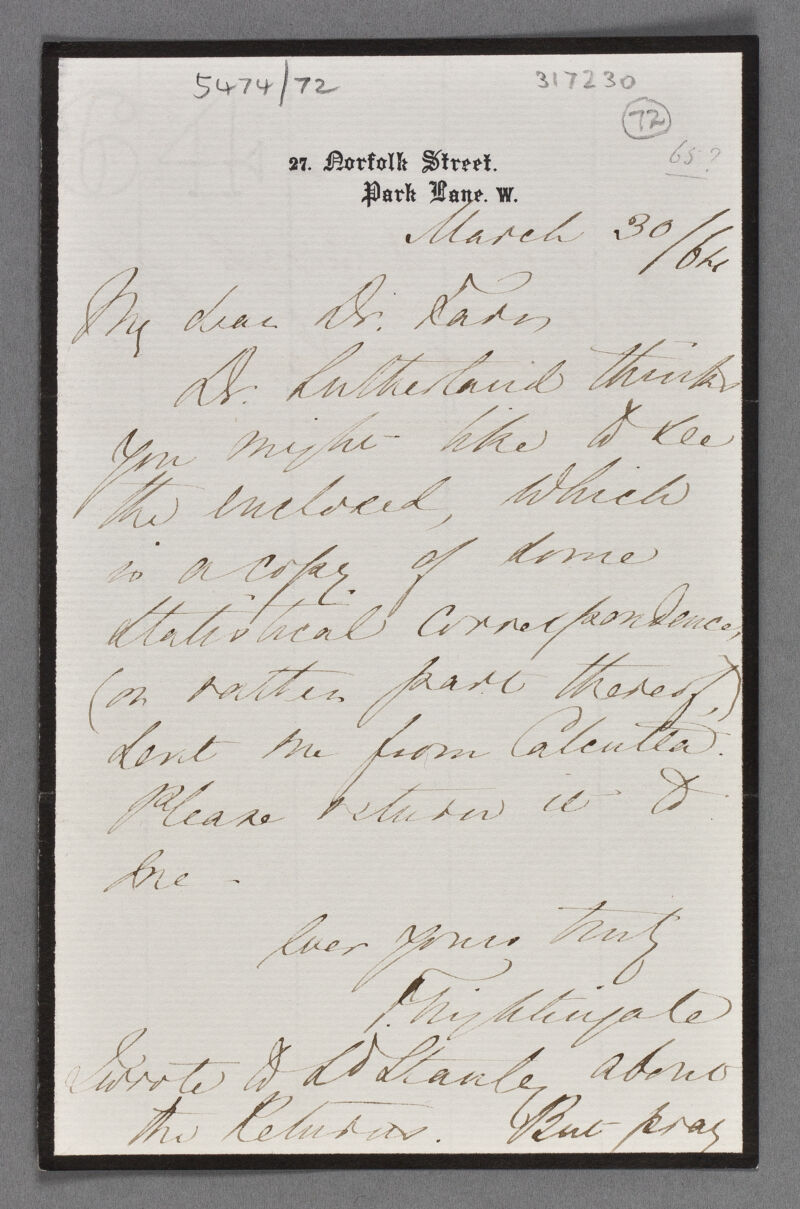 5474/72
317230
72
65?
27. Norfolk Street.
Park Lane. W.
March 30/64
My dear Dr. Farr
Dr. Sutherland thinks
you might like to see
the enclosed, which
is a copy of some
statistical correspondence,
(or rather part thereof,)
sent me from Calcutta.
Please return it to
me -
ever yours truly
F. Nightingale
I wrote to Ld Stanley about
the Returns. But pray